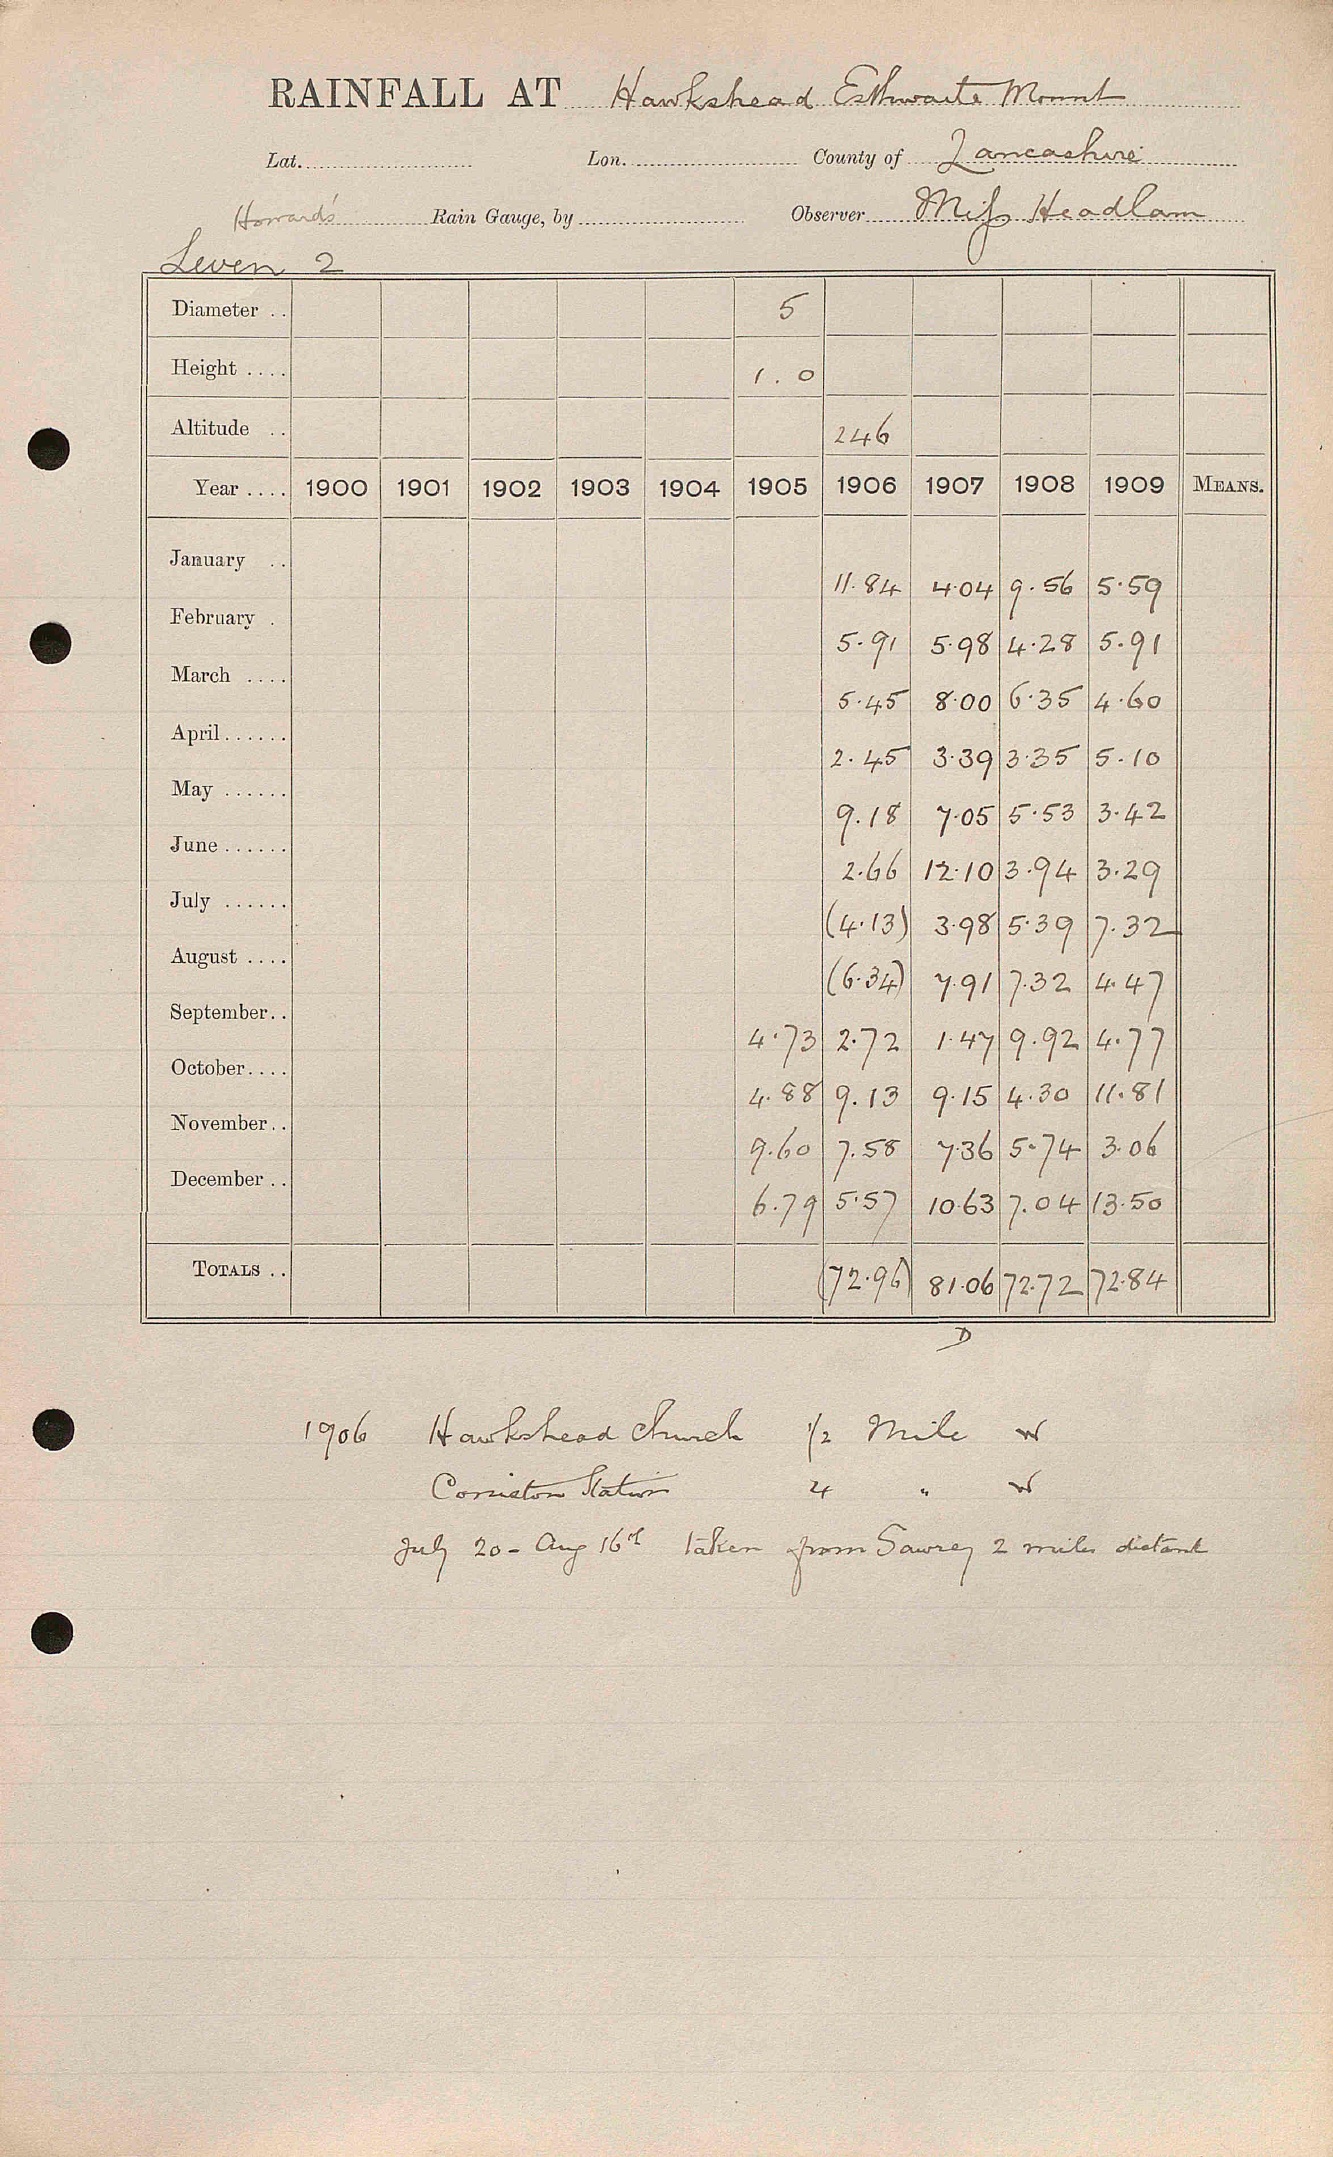 RAINFALL AT Hawkshead Esthwaite Mount
Lat. Lon. County of Lancashire
Howard's Rain Gauge, by Observer Miss Headlam
Leven 2
Diameter .. 5
Height .... 1.0
Altitude .. 246
Year .... 1900 1901 1902 1903 1904 1905 1906 1907 1908 1909 MEANS.
January .. 11.84 4.04 9.56 5.59
February . 5.91 5.98 4.28 5.91
March .... 5.45 8.00 6.35 4.60
April...... 2.45 3.39 3.35 5.10
May ...... 9.18 7.05 5.53 3.42
June ...... 2.66 12.10 3.94 3.29
July ...... (4.13) 3.98 5.39 7.32
August .... (6.34) 7.91 7.32 4.47
September.. 4.73 2.72 1.47 9.92 4.77
October.... 4.88 9.13 9.15 4.30 11.81
November.. 9.60 7.58 7.36 5.74 3.06
December .. 6.79 5.57 10.63 7.04 13.50
TOTALS .. (72.96) 81.06 72.72 72.84
D
1906 Hawkshead Church 1/2 Mile W
Coniston Station 4 " W
July 20 - Aug 16th taken from Sawrey 2 miles distant